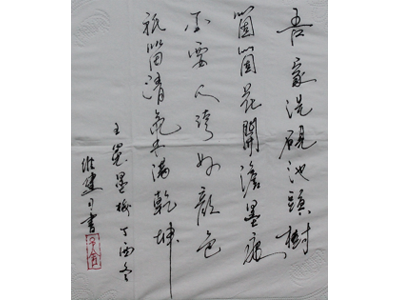 吾家洗硯池頭樹
箇箇花開澹墨痕
不要人誇好顏色
祇留清氣滿乾坤
王冕墨梅 丁酉冬